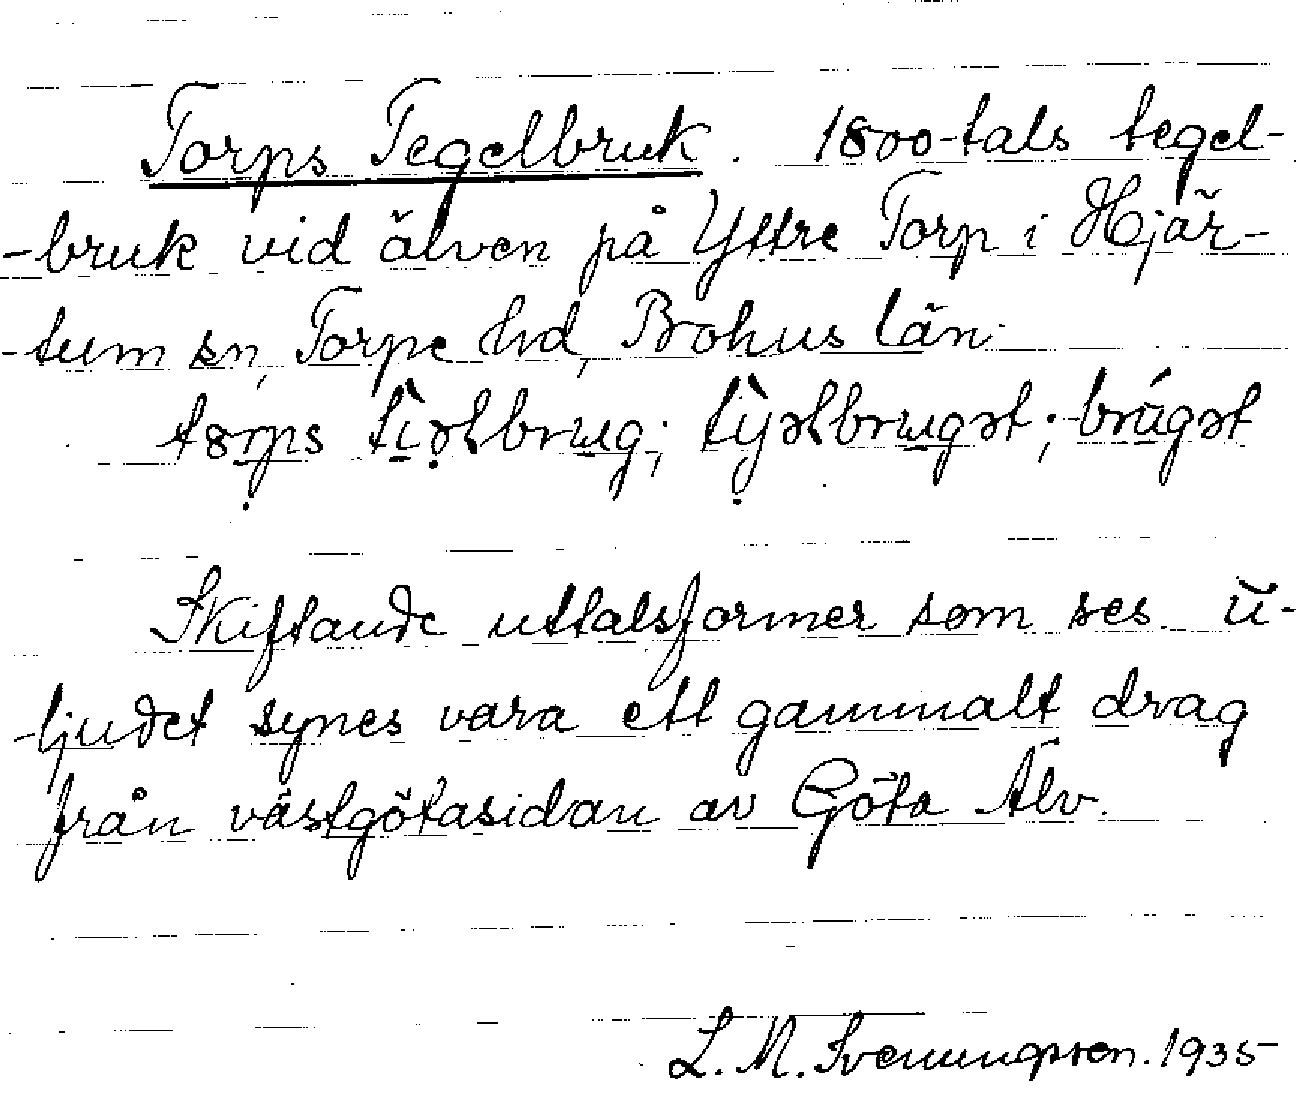 Torps Tegelbruk. 1800-tals tegel-
-bruk vid älven på Yttre Torp i Hjär-
-tum sn, Torpe hd, Bohus län.
Skiftande uttalsformer som ses. ŭ-
-ljudet synes vara ett gammalt drag
från västgötasidan av Göta Älv.
L. M. Svenungsson. 1935